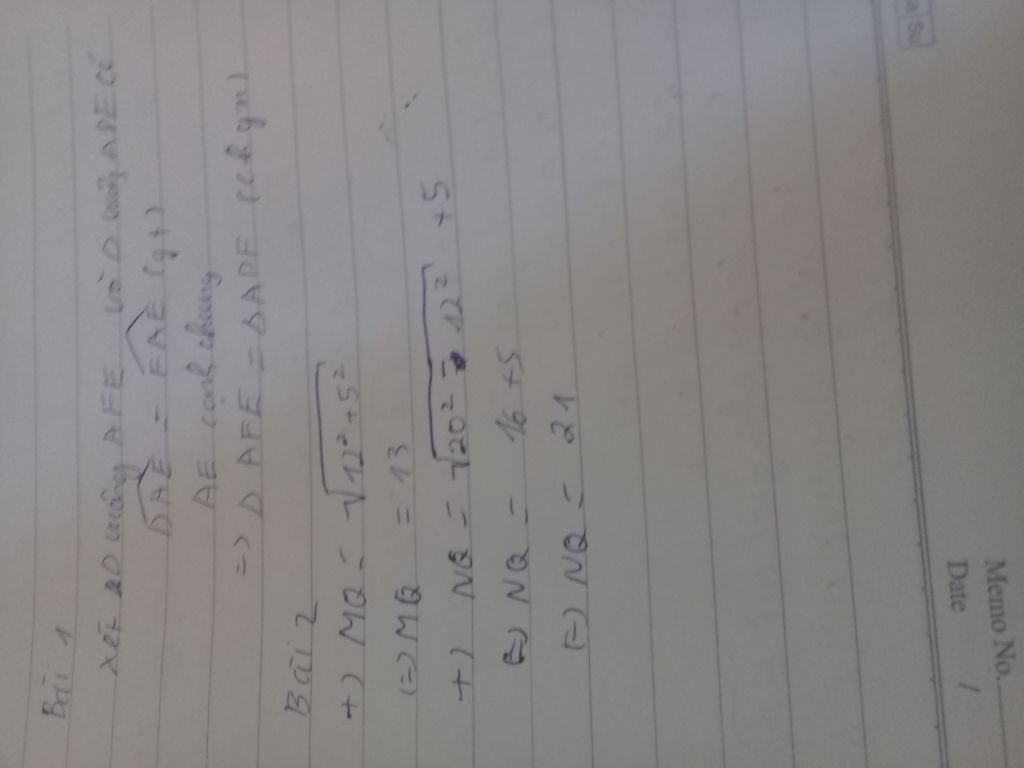 Bài 1
Xét Δ vuông AFE và Δ vuông ADE có
DAE = FAE (gt)
AE cạnh chung
=> Δ AFE = Δ ADE (ch gn)
Bài 2
+) MQ = √12² + 5²
(=) MQ = 13
+) NQ = √20² - 12² + 5
(=) NQ = 16 + 5
(=) NQ = 21
Memo No.
Date /